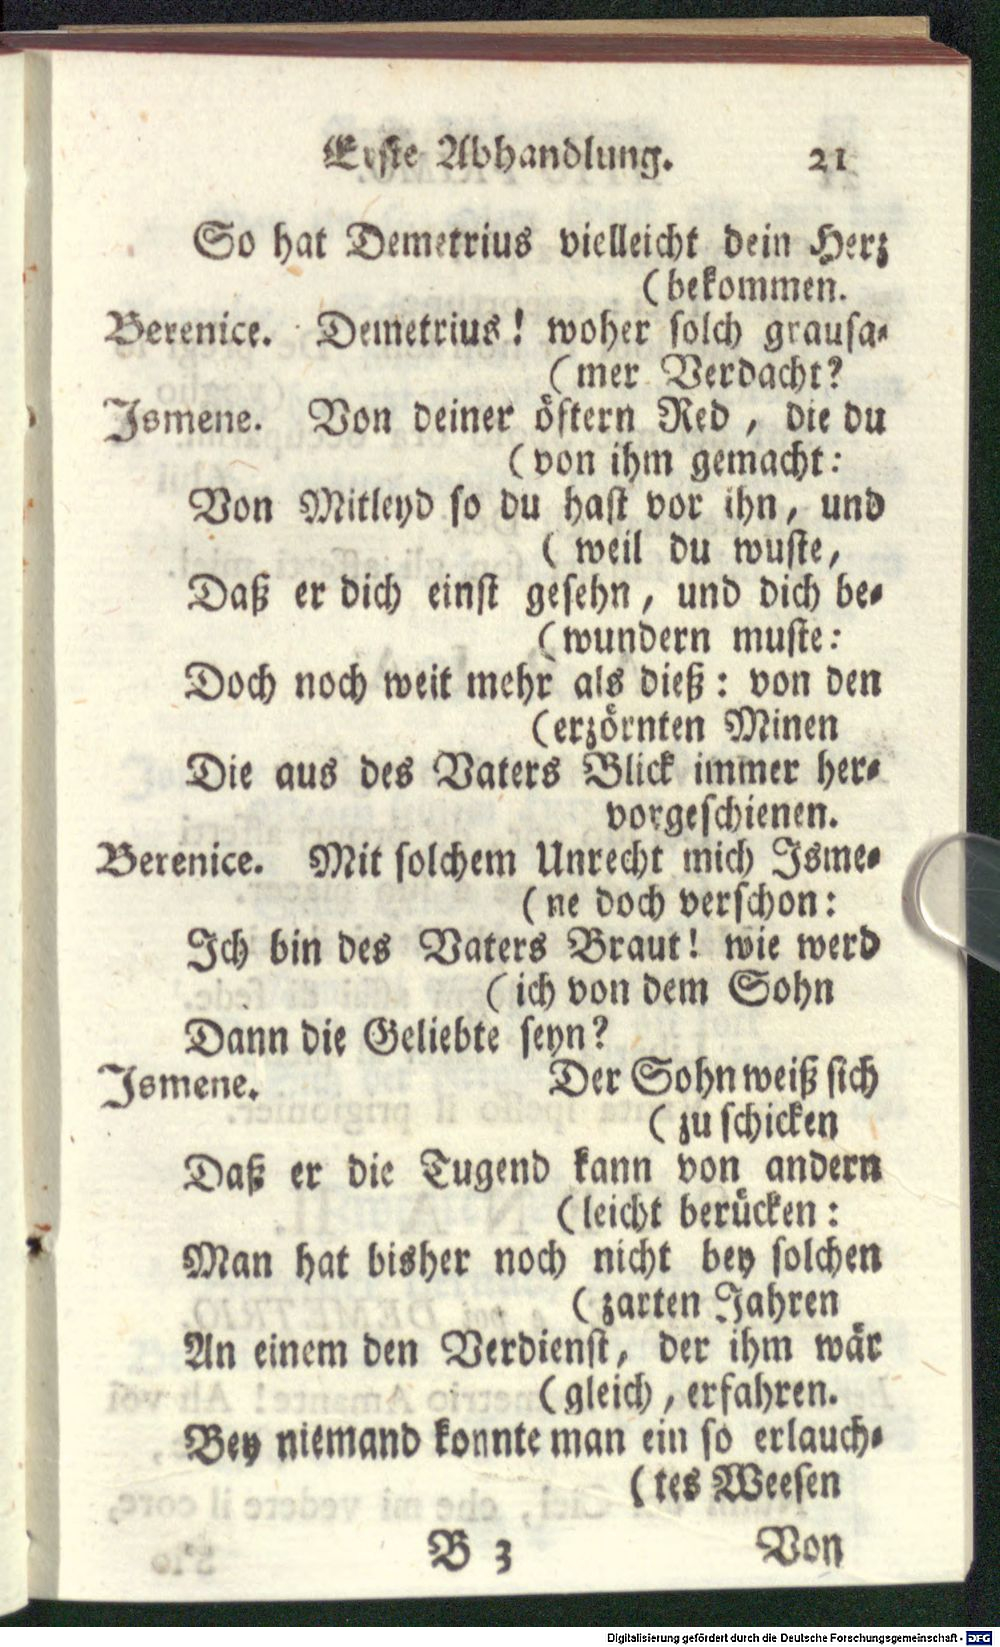 Erste Abhandlung. 21
So hat Demetrius vielleicht dein Herz
(bekommen.
Berenice. Demetrius! woher solch grausa-
(mer Verdacht?
Ismene. Von deiner öftern Red, die du
(von ihm gemacht:
Von Mitleyd so du hast vor ihn, und
( weil du wuste,
Daß er dich einst gesehn, und dich be-
(wundern muste:
Doch noch weit mehr als dieß: von den
(erzörnten Minen
Die aus des Vaters Blick immer her-
vorgeschienen.
Berenice. Mit solchem Unrecht mich Isme-
(ne doch verschon:
Ich bin des Vaters Braut! wie werd
(ich von dem Sohn
Dann die Geliebte seyn?
Ismene. Der Sohn weiß sich
(zu schicken
Daß er die Tugend kann von andern
(leicht berücken:
Man hat bisher noch nicht bey solchen
(zarten Jahren
An einem den Verdienst, der ihm wär
(gleich, erfahren.
Bey niemand konnte man ein so erlauch-
(tes Weesen
B 3 Von
Digitalisierung gefördert durch die Deutsche Forschungsgemeinschaft - DFG